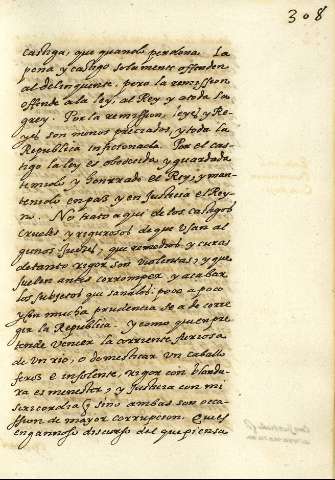 308
castiga, que quando perdona. La
pena y castigo solamente offenden
al delinquente, pero la remission
offende a la ley, al Rey y a toda su
grey. Por la remission, leyes y Re-
yes son menos preciados, y toda la
Republica inficionada. Por el cas-
tigo la ley es obedescida y guardada
temido y honrrado el Rey, y man-
tenido en paz y en Justicia el Rey-
no. No trato aqui de los castigos
crueles y rigurosos de que usan al
gunos Juezes, que remedios y curas
de tanto rigor son violentas, y que
suelen antes corromper y acabar
los subjetos que sanalos. poco a poco
y con mucha prudencia se a de corre
gir la Republica. y como quien pre
tende vencer la corriente furiosa
de un rio, o domesticar un caballo
feroz e insolente, rigor con blandu
ra es menester, y Justicia con mi
sericordia, sino ambas son occa-
ssion de mayor corrupcion. Que es
engañoso discurso del que piensa